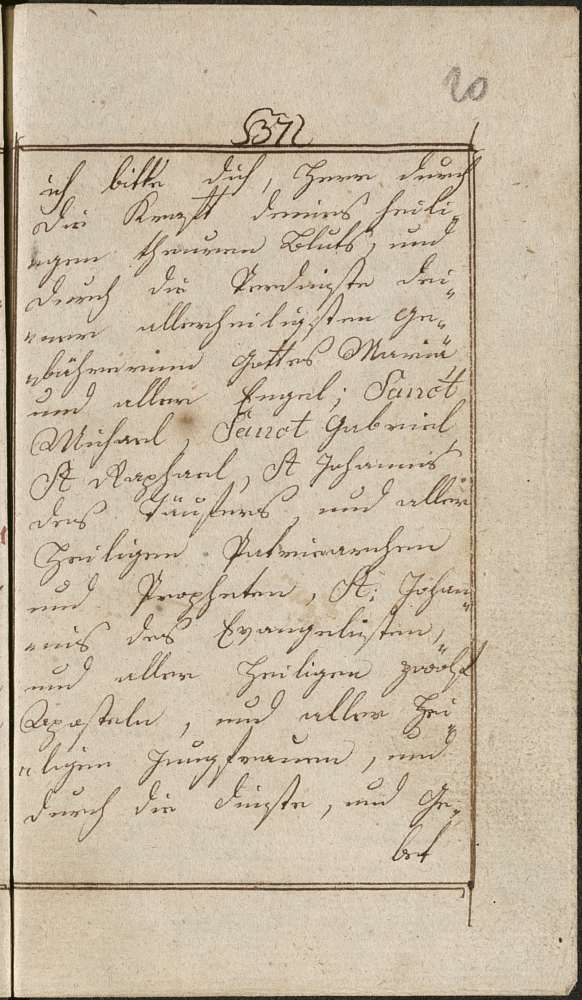 20
37
ich bitte dich, Herr durch
die Kraft deines heili„
„gen theuren Bluts, und
durch die Verdinste dei„
„ner allerheiligsten Ge„
„bährerinn Gottes Mariä
und aller Engel; Sanct
Michael, Sanct Gabriel
St Raphael, St Johannis
des Täufers, und aller
Heiligen Patriaarchen
und Propheten, St: Johan„
„nis des Evangelisten,
und aller Heiligen zwölf
Aposteln, und aller Hei„
„ligen Jungfrauen, und
durch die Dinste, und Ge„
bet